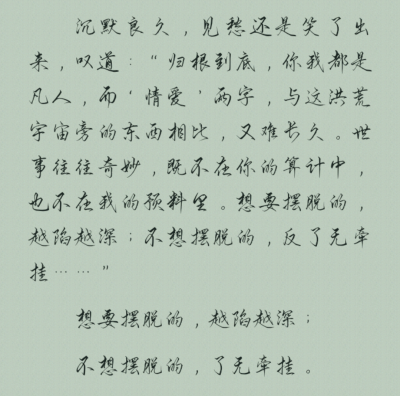 沉默良久，见愁还是笑了出
来，叹道：“归根到底，你我都是
凡人，而‘情爱’两字，与这洪荒
宇宙旁的东西相比，又难长久。世
事往往奇妙，既不在你的算计中，
也不在我的预料里。想要摆脱的，
越陷越深；不想摆脱的，反了无牵
挂……”
想要摆脱的，越陷越深；
不想摆脱的，了无牵挂。